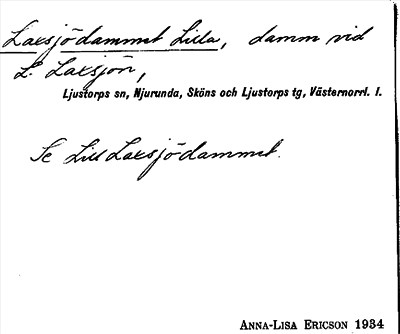 Laxsjödammet Lilla, damm vid
L. Laxsjön,
Ljustorps sn, Njurunda, Sköns och Ljustorps tg, Västernorrl. l.
Se Lill Laxsjödammet.
ANNA-LISA ERICSON 1934